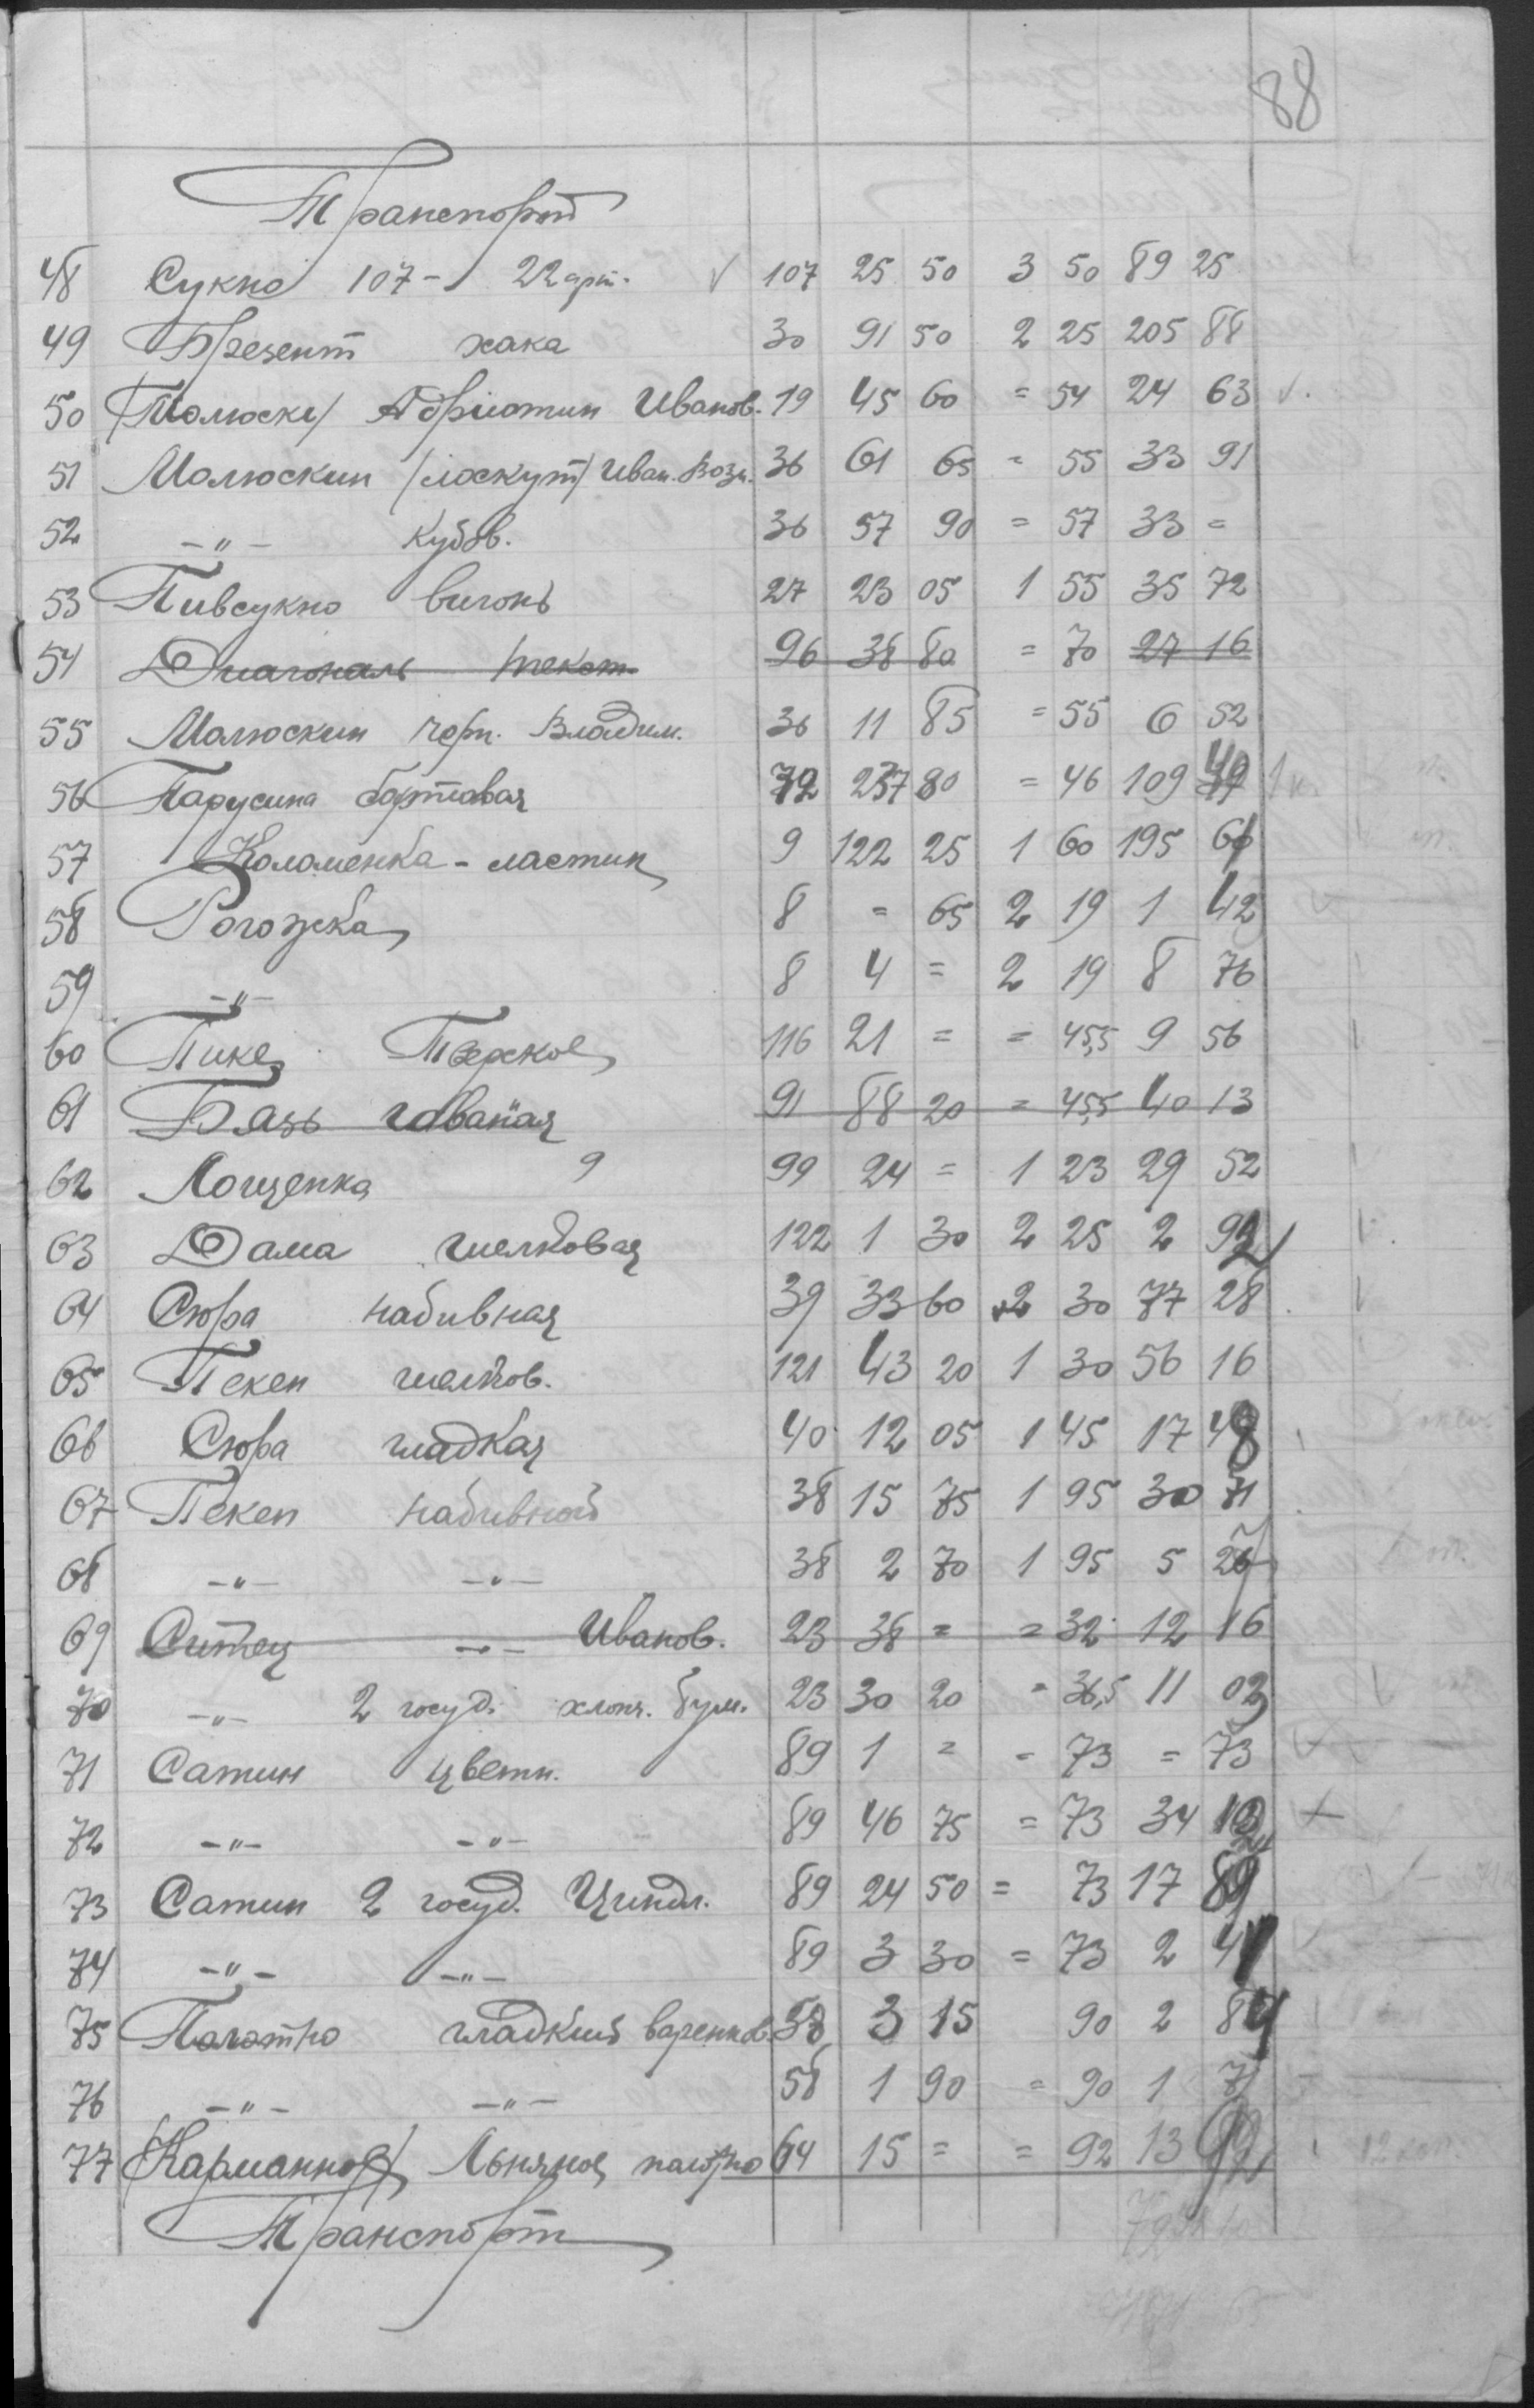 88
Транспорт
48 Сукно 107 - 22 арт. √ 107 25 50 3 50 89 25
49 Брезент хака 30 91 50 2 25 205 88
50 /Молюск/ Адриотин Иванов. 19 45 60 = 54 24 63 √.
51 Молюскин /лоскут/ Иван. Возн. 36 61 65 = 55 33 91
52 -"- кубов. 36 57 90 = 57 33 =
53 Пивсукно вигонь 27 23 05 1 55 35 72
54 Диагональ текст. 96 38 80 = 70 27 16
55 Молюскин черн. Владим. 36 11 85 = 55 6 52
56 Парусина бортовая 72 237 80 = 46 109 49
57 Коломенка - ластик 9 122 25 1 60 195 60
58 Рогожка 8 = 65 2 19 1 42
59 -"- 8 4 = 2 19 8 76
60 Пике Тверское 116 21 = = 45,5 9 56
61 Бязь 91 88 20 = 45,5 40 13
62 Лощенка 9 99 24 = 1 23 29 52
63 Дама шелковая 122 1 30 2 25 2 92
64 Сюра набивная 39 33 60 2 30 77 28
65 Пекен шелков. 121 43 20 1 30 56 16
66 Сюра гладкая 40 12 05 1 45 17 48
67 Пекен набивной 38 15 75 1 95 30 71
68 -"- -"- 38 2 70 1 95 5 27
69 Ситец -"- Иванов. 23 38 = = 32 12 16
70 -"- 2 госуд. хлоп. бум. 23 30 20 = 36,5 11 02
71 Сатин цветн. 89 1 = = 73 = 73
72 -"- -"- 89 46 75 = 73 34 12
73 Сатин 2 госуд. Циндл. 89 24 50 = 73 17 89
74 -"- -"- 89 3 30 = 73 2 41
75 Полотно гладкий варенков. 58 3 15 90 2 84
76 -"- -"- 58 1 90 = 90 1 71
77 /Карманное/ Льняное полотно 64 15 = = 92 13 92
Транспорт